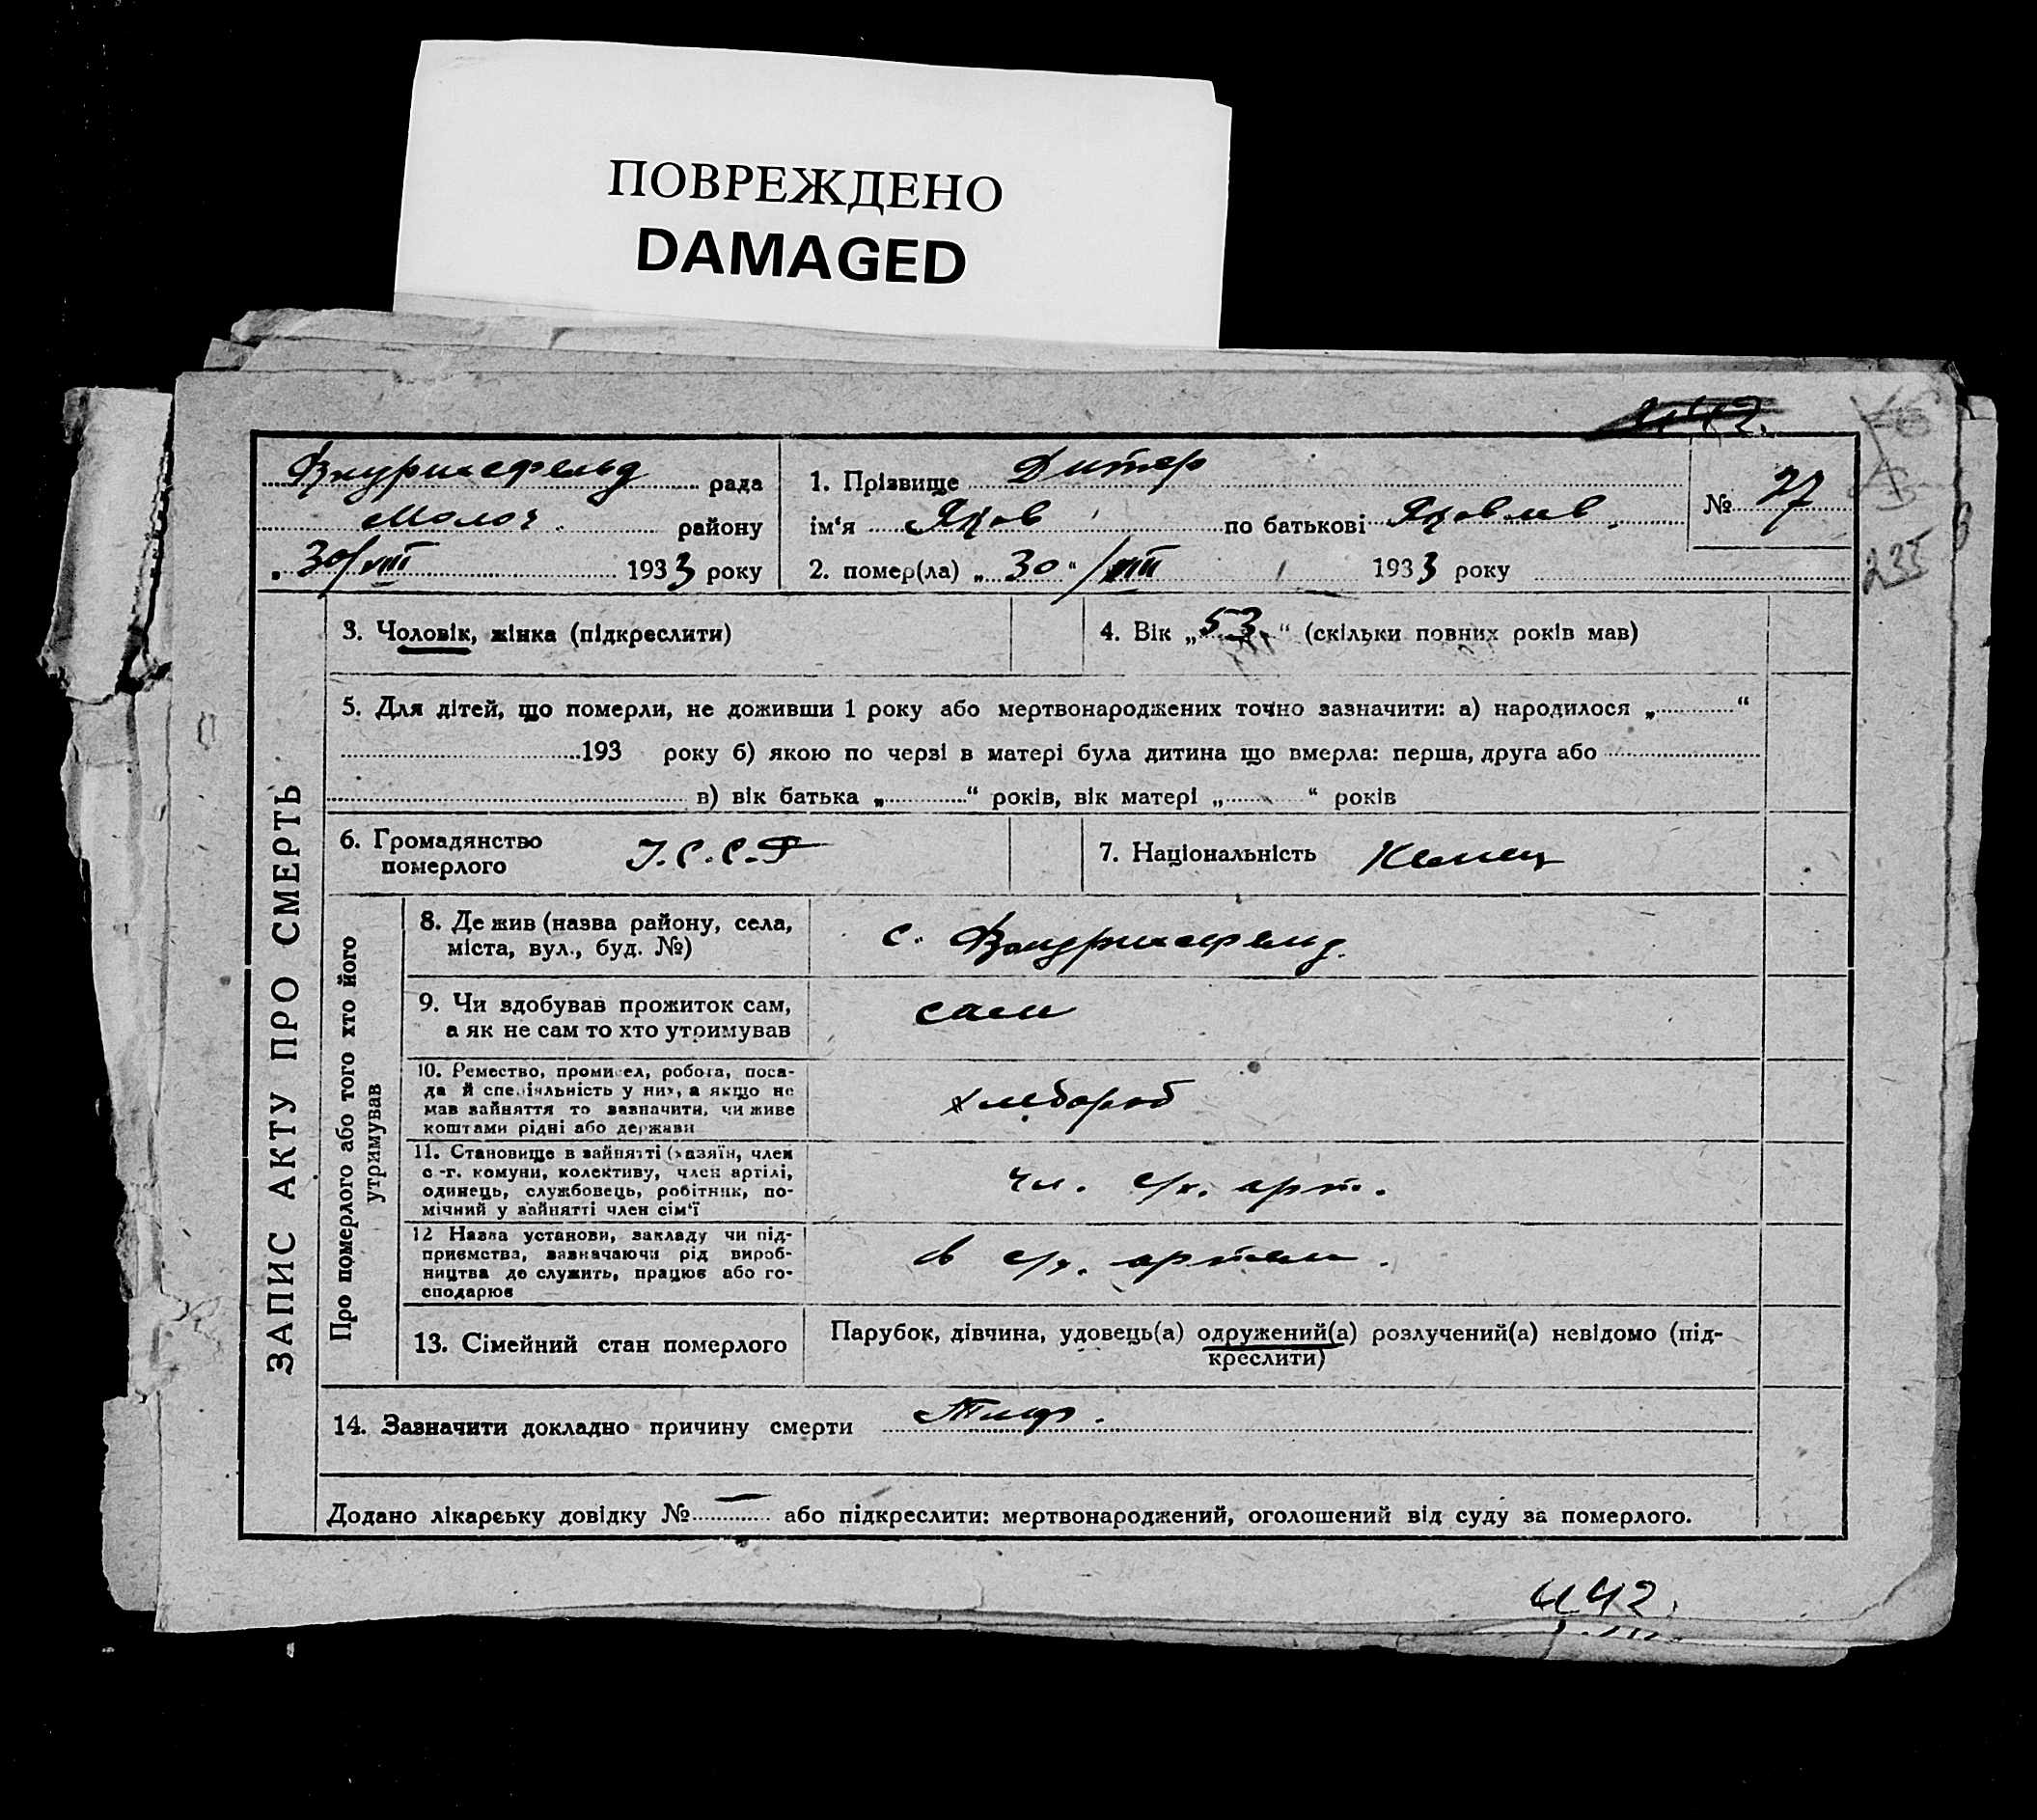 ПОВРЕЖДЕНО
DAMAGED
рада
Молоч. району
30/VIII 1933 року
1. Прізвище Дитер
ім'я Яков по батькові Яковлев.
2. помер(ла) „30“/VIII 1933 року
№ 27
235
ЗАПИС АКТУ ПРО СМЕРТЬ
3. Чоловік, жінка (підкреслити)
4. Вік „53.“ (скільки повних років мав)
5. Для дітей, що померли, не доживши 1 року або мертвонароджених точно зазначити: а) народилося „ “
193 року б) якою по черзі в матері була дитина що вмерла: перша, друга або
в) вік батька „ “ років, вік матері „ “ років
6. Громадянство
померлого
У.С.С.Р
7. Національність Немец
Про померлого або того хто його
утримував
8. Де жив (назва району, села,
міста, вул., буд. №)
с.
9. Чи здобував прожиток сам,
а як не сам то хто утримував
сам
10. Ремество, промисел, робота, поса-
да й спеціяльність у них, а якщо не
мав зайняття то зазначити, чи живе
коштами рідні або держави
хлебороб
11. Становище в зайнятті (хазяїн, член
с.-г. комуни, колективу, член артілі,
одинець, службовець, робітник, по-
мічний у зайнятті член сім'ї
чл. с/х. арт.
12 Назва установи, закладу чи під-
приємства, зазначаючи рід вироб-
ництва де служить, працює або го-
сподарює
в с/х. артели.
13. Сімейний стан померлого
Парубок, дівчина, удовець(а) одружений(а) розлучений(а) невідомо (під-
креслити)
14. Зазначити докладно причину смерти Тиф.
Додано лікарську довідку № — або підкреслити: мертвонароджений, оголошений від суду за померлого.
442.